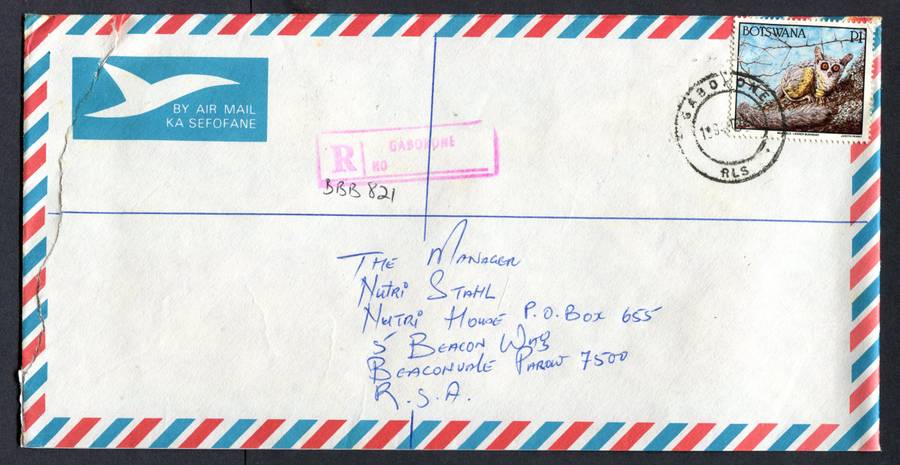 BY AIR MAIL
KA SEFOFANE
BOTSWANA P1
GABORONE
RLS
R GABORONE
NO
BBB 821
The Manager
Nutri Stahl
Nutri House P.O. Box 655
5 Beacon Way
Beaconvale Parow 7500
R.S.A.